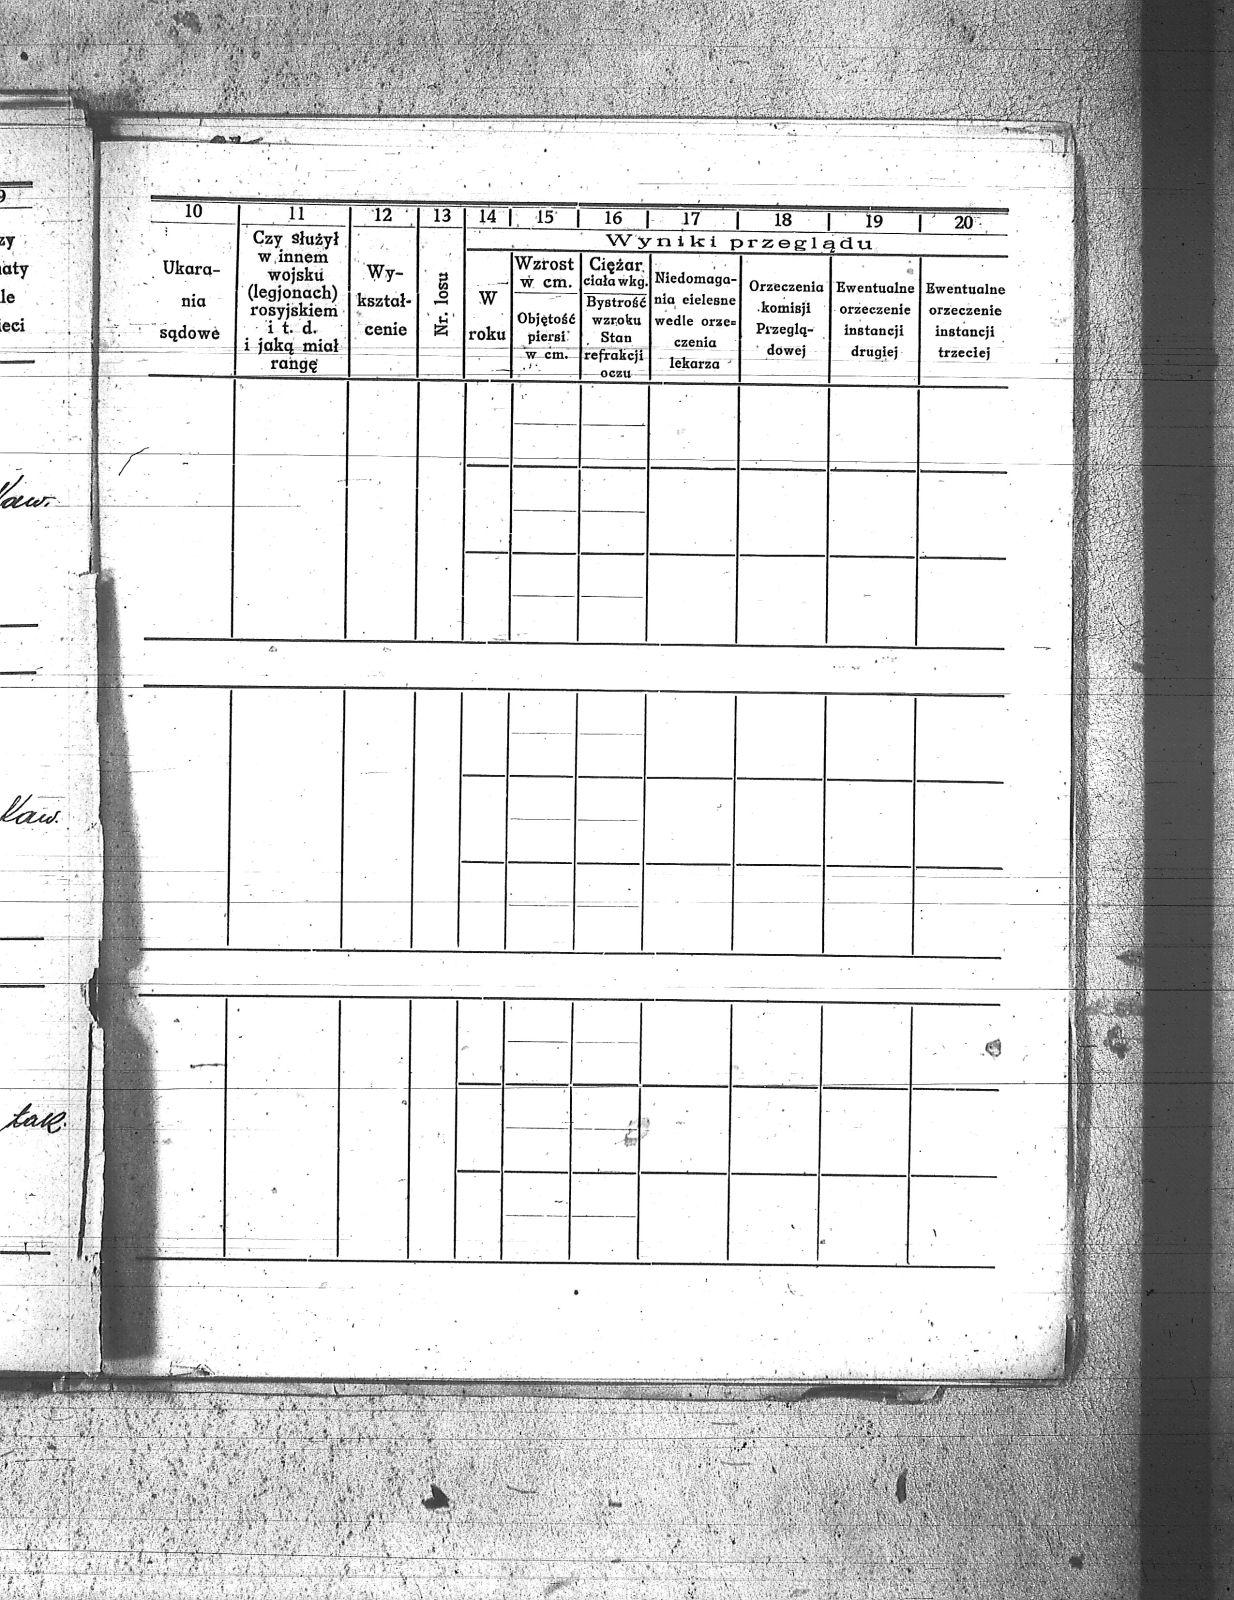 9
zy
naty
le
ieci
Kaw.
Kaw.
tak.
10 11 12 13 14 15 16 17 18 19 20
Wyniki przeglądu
Ukara-
nia
sądowe
Czy służył
w innem
wojsku
(legjonach)
rosyjskiem
i t. d.
i jaką miał
rangę
Wy-
kształ-
cenie
Nr. losu
W
roku
Wzrost
w cm.
Objętość
piersi
w cm.
Ciężar
ciała w kg.
Bystrość
wzroku
Stan
refrakcji
oczu
Niedomaga-
nia cielesne
wedle orze-
czenia
lekarza
Orzeczenia
komisji
Przeglą-
dowej
Ewentualne
orzeczenie
instancji
drugiej
Ewentualne
orzeczenie
instancji
trzeciej